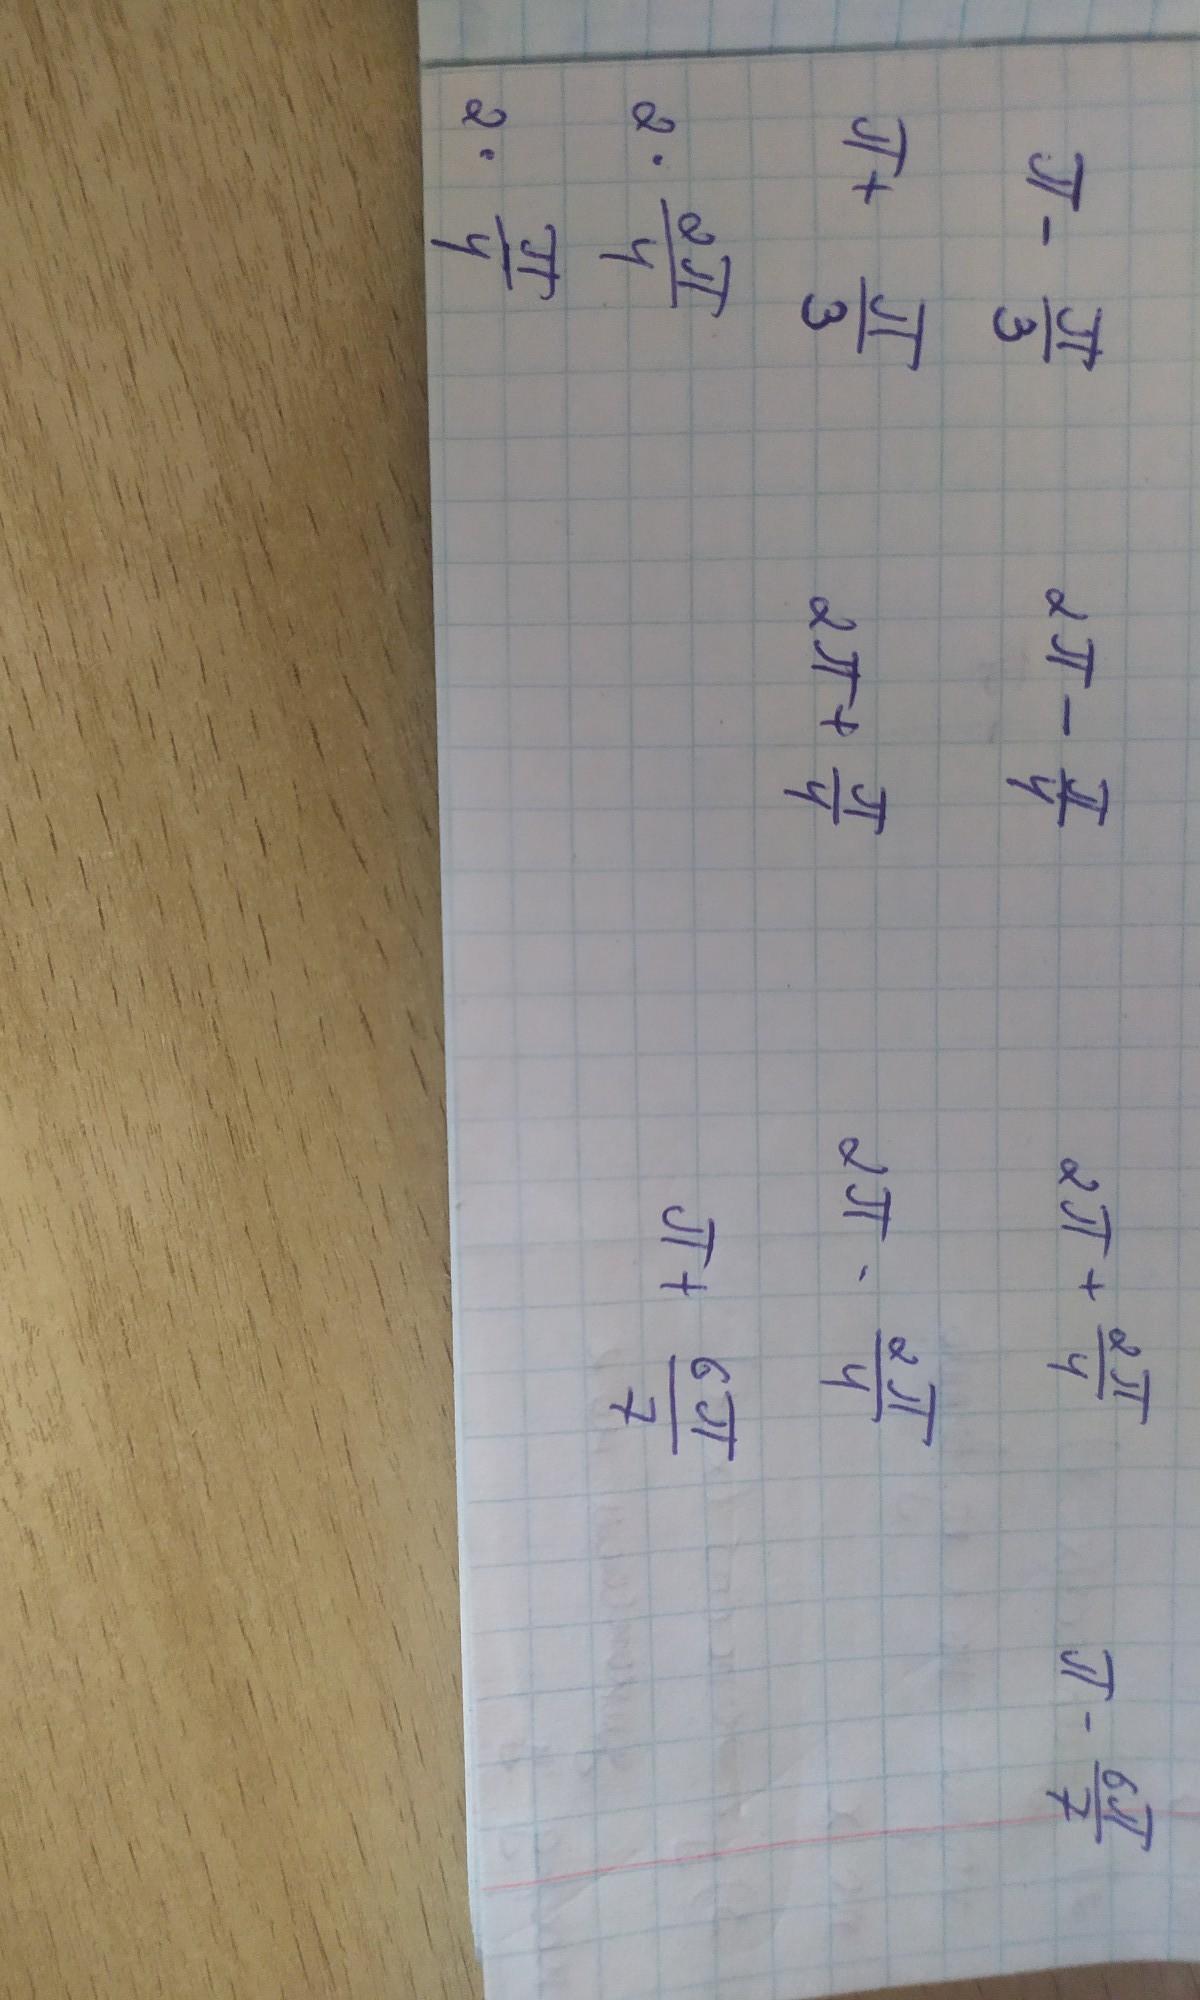 π - π/3   2π - π/4   2π + 2π/4   π - 6π/7
π + π/3   2π + π/4   2π · 2π/4
2 · 2π/4   π + 6π/7
2 · π/4